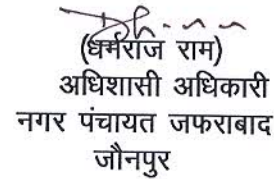 (धर्मराज राम)
अधिशासी अधिकारी
नगर पंचायत जफराबाद
जौनपुर